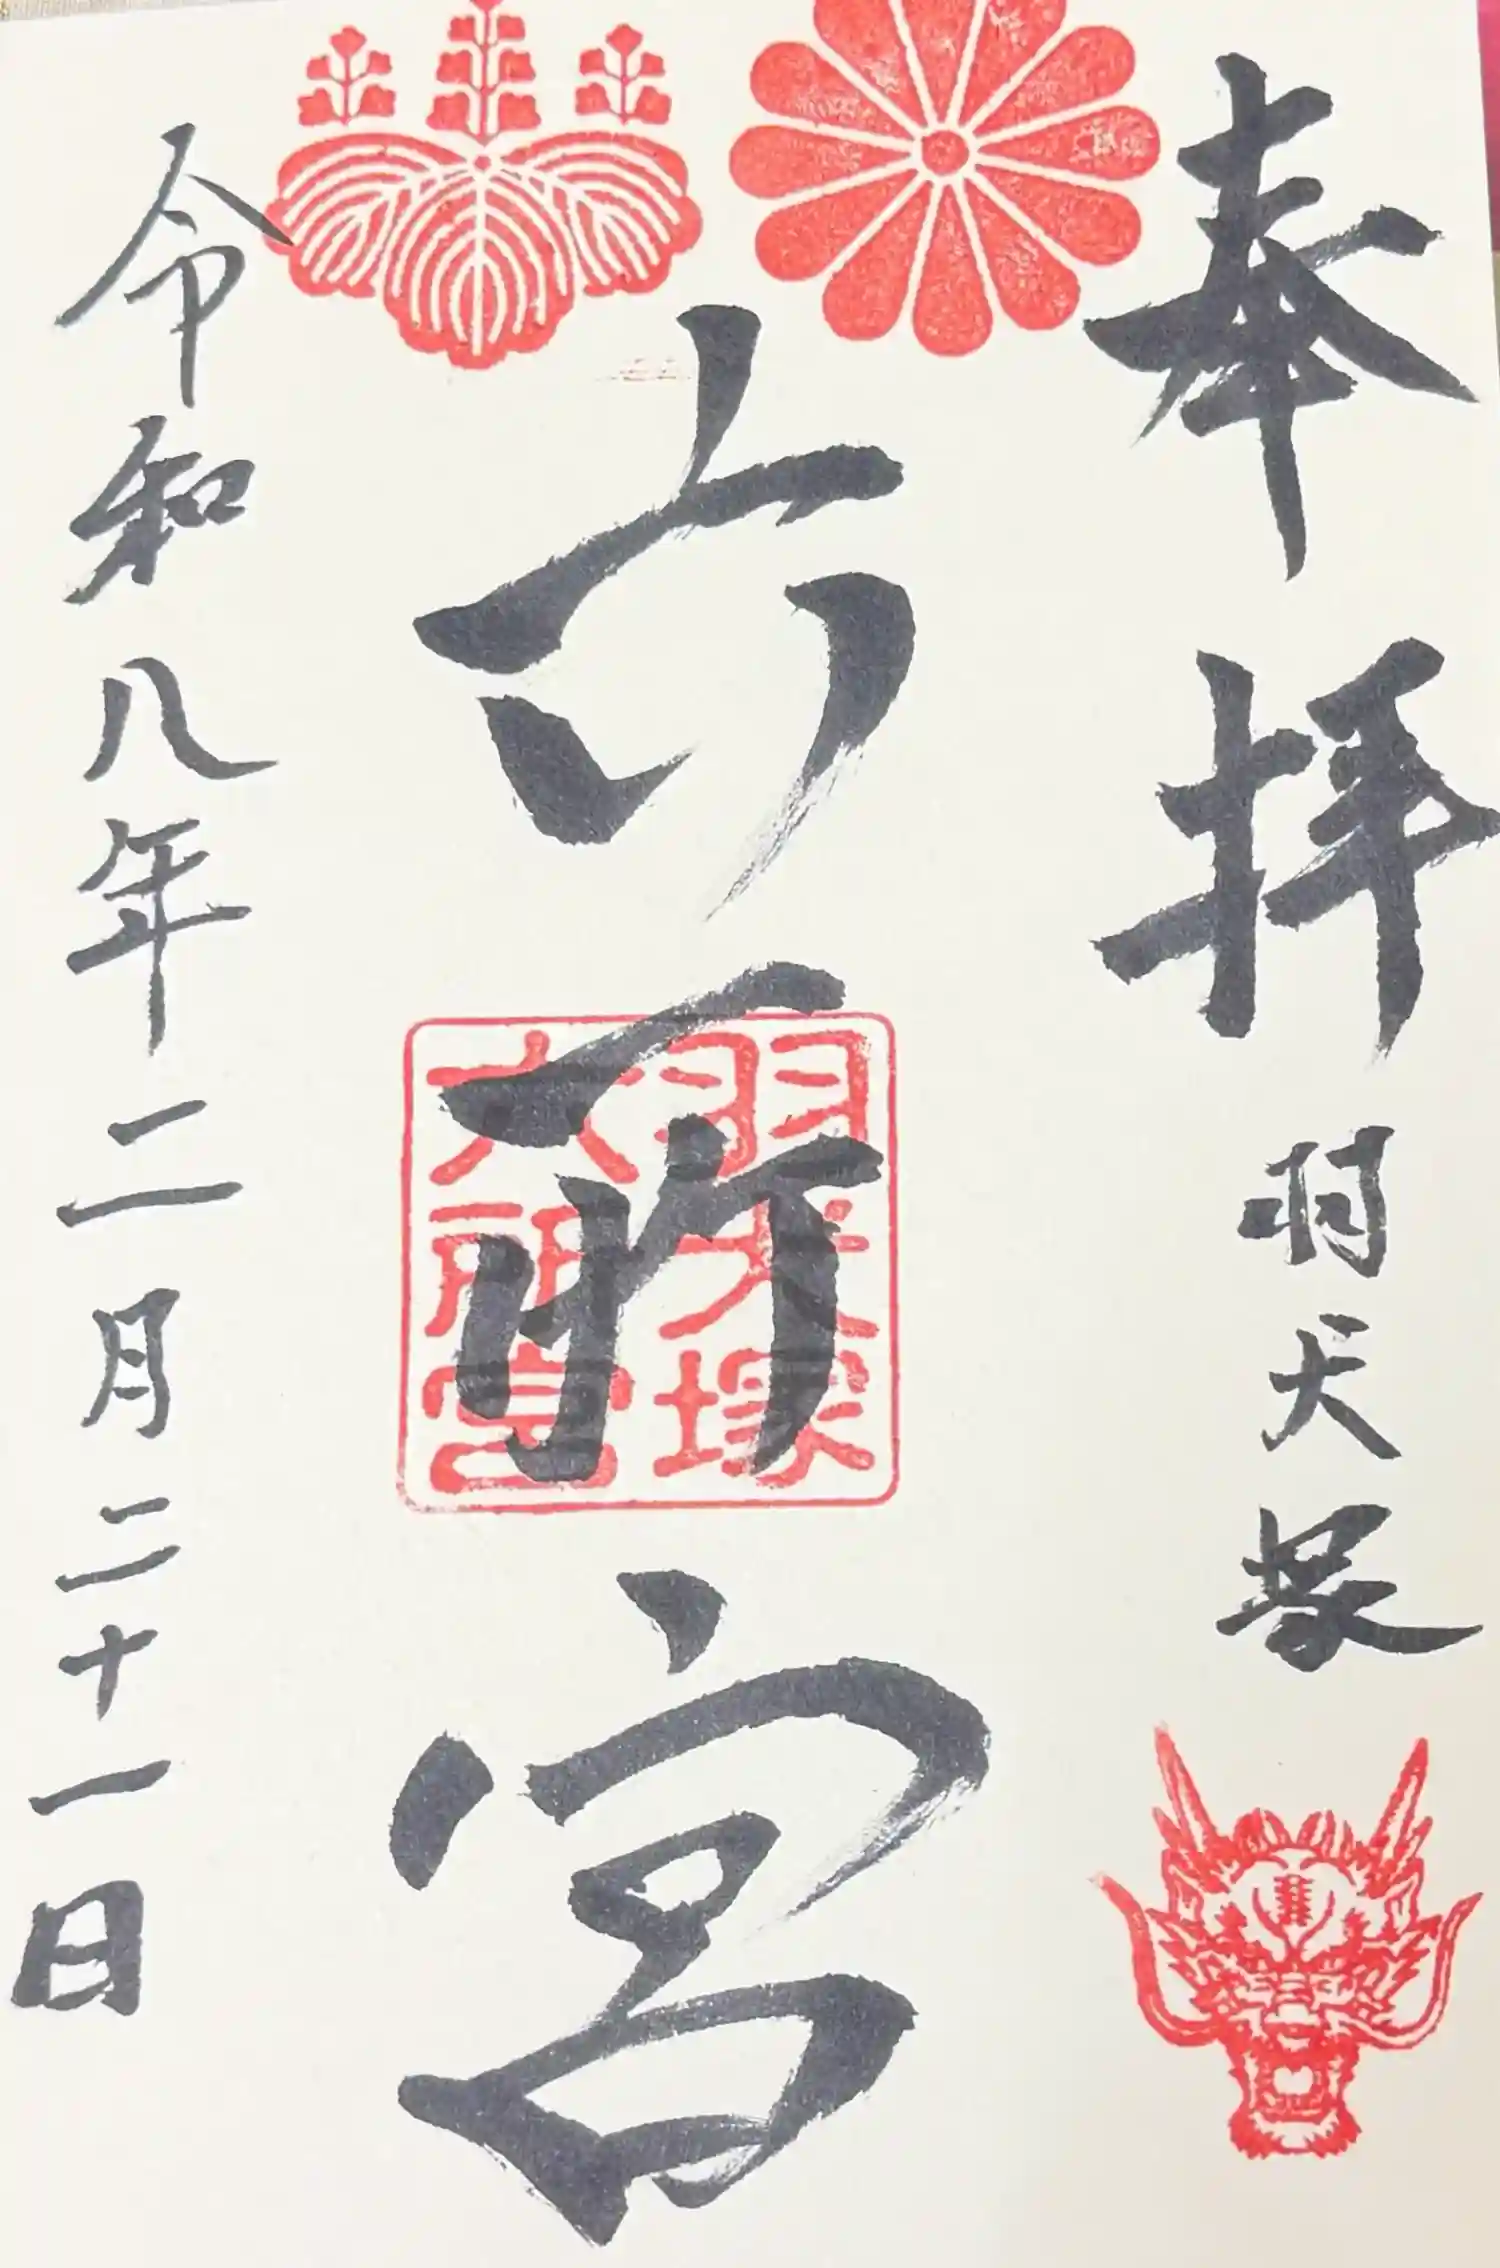 奉拝 羽犬塚
六所宮
羽犬塚
六所宮
令和八年二月二十一日